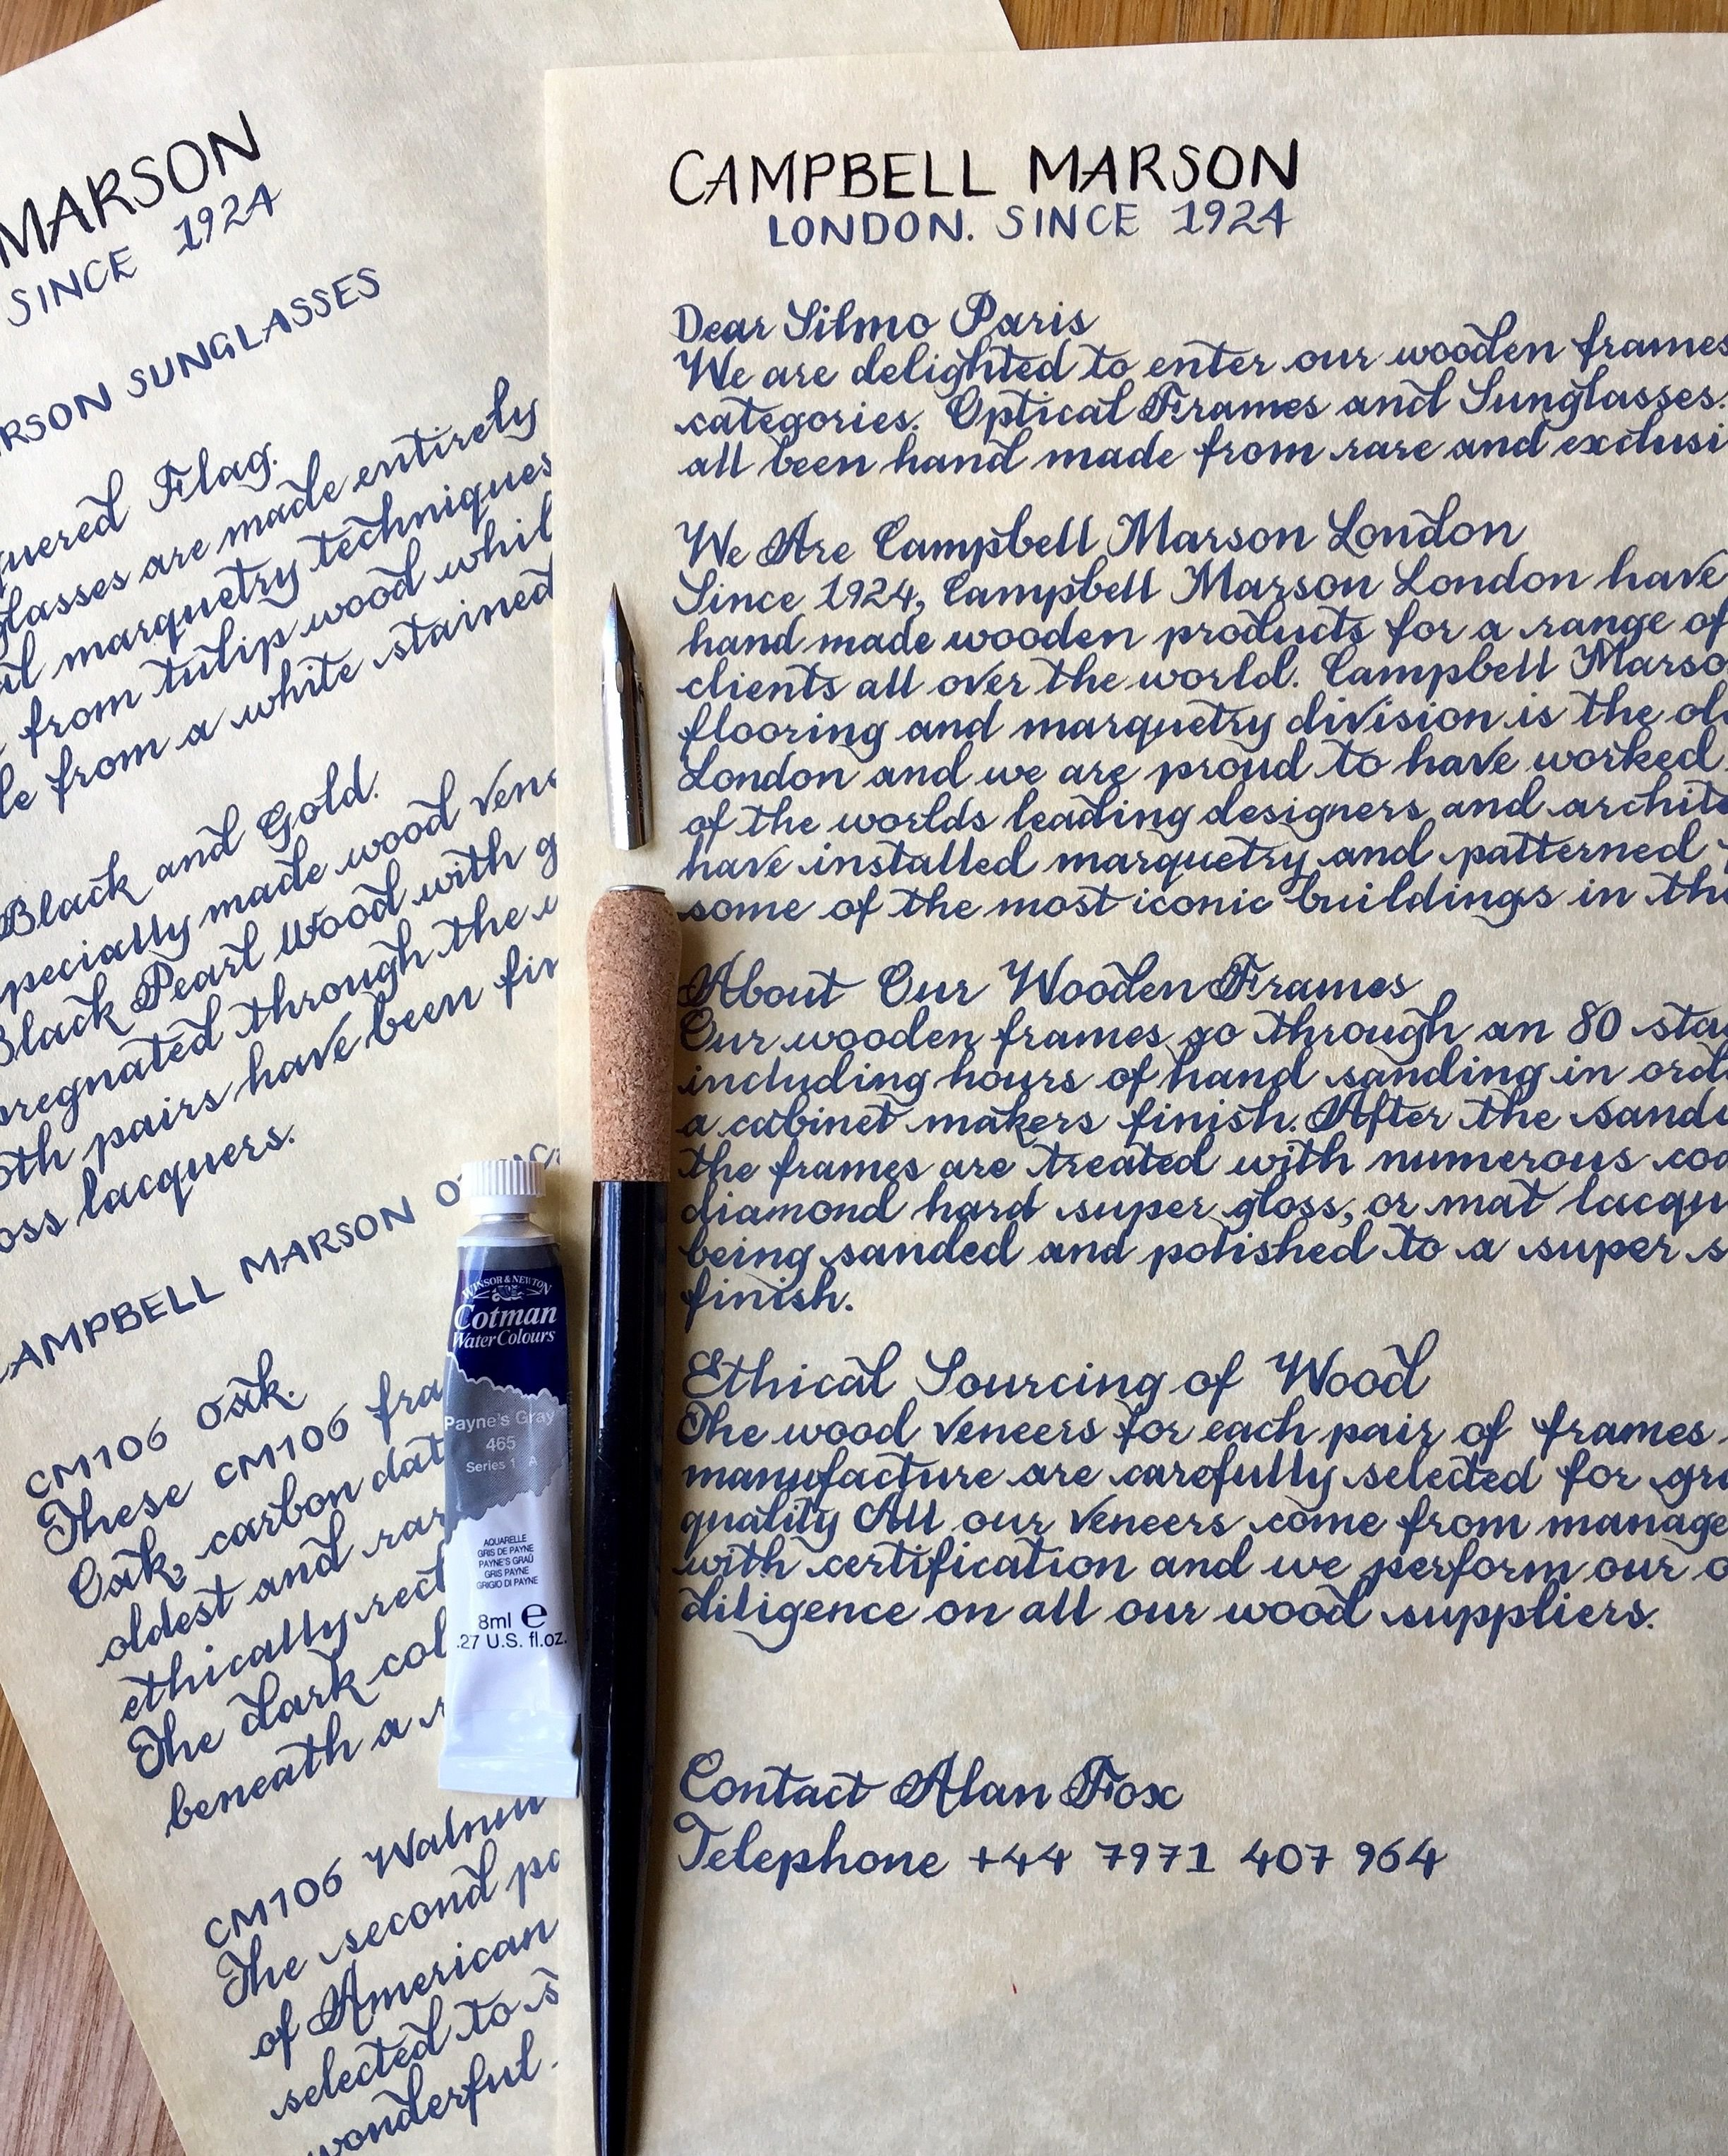 MARSON
SINCE 1924
RSON SUNGLASSES
quered Flag.
glasses are made entirely
al marquetry techniques
from tulip wood whil
le from a white stained
Black and Gold.
pecially made wood vene
Black Pearl Wood with g
pregnated through the w
oth pairs have been fin
oss lacquers.
AMPBELL MARSON
CM106 Oak.
These CM106 fra
Oak, carbon dat
oldest and rar
ethically rect
The dark col
beneath a r
CM106 Walnu
The second pa
of American
selected to s
wonderful
CAMPBELL MARSON
LONDON. SINCE 1924
Dear Silmo Paris
We are delighted to enter our wooden frames
categories. Optical Frames and Sunglasses.
all been hand made from rare and exclusi
We Are Campbell Marson London
Since 1924, Campbell Marson London have
hand made wooden products for a range of
clients all over the world. Campbell Marso
flooring and marquetry division is the old
London and we are proud to have worked
of the worlds leading designers and archite
have installed marquetry and patterned
some of the most iconic buildings in the
About Our Wooden Frames
Our wooden frames go through an 80 sta
including hours of hand sanding in orde
a cabinet makers finish. After the sand
the frames are treated with numerous coa
diamond hard super gloss, or mat lacqu
being sanded and polished to a super s
finish.
Ethical Sourcing of Wood
The wood veneers for each pair of frames
manufacture are carefully selected for gra
quality All our veneers come from manage
with certification and we perform our o
diligence on all our wood suppliers.
Contact Alan Fox
Telephone +44 7971 407 964
WINSOR & NEWTON
Cotman
Water Colours
Payne's Gray
465
Series 1 A
AQUARELLE
GRIS DE PAYNE
PAYNE'S GRAU
GRIS PAYNE
GRIGIO DI PAYNE
8ml e
.27 U.S. fl.oz.